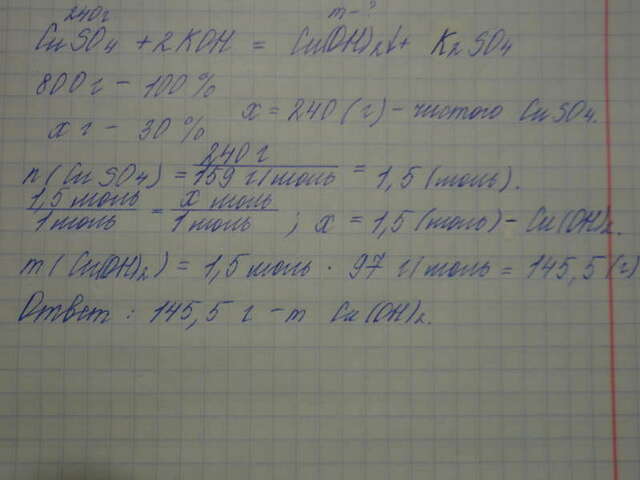 240г m - ?
CuSO4 + 2KOH = Cu(OH)2↓ + K2SO4
800г - 100%
x г - 30% x = 240 (г) - чистого CuSO4.
n(CuSO4) = 240 г / 159 г/моль = 1,5 (моль).
1,5 моль / 1 моль = x моль / 1 моль ; x = 1,5 (моль) - Cu(OH)2.
m(Cu(OH)2) = 1,5 моль · 97 г/моль = 145,5 (г)
Ответ: 145,5 г - m Cu(OH)2.